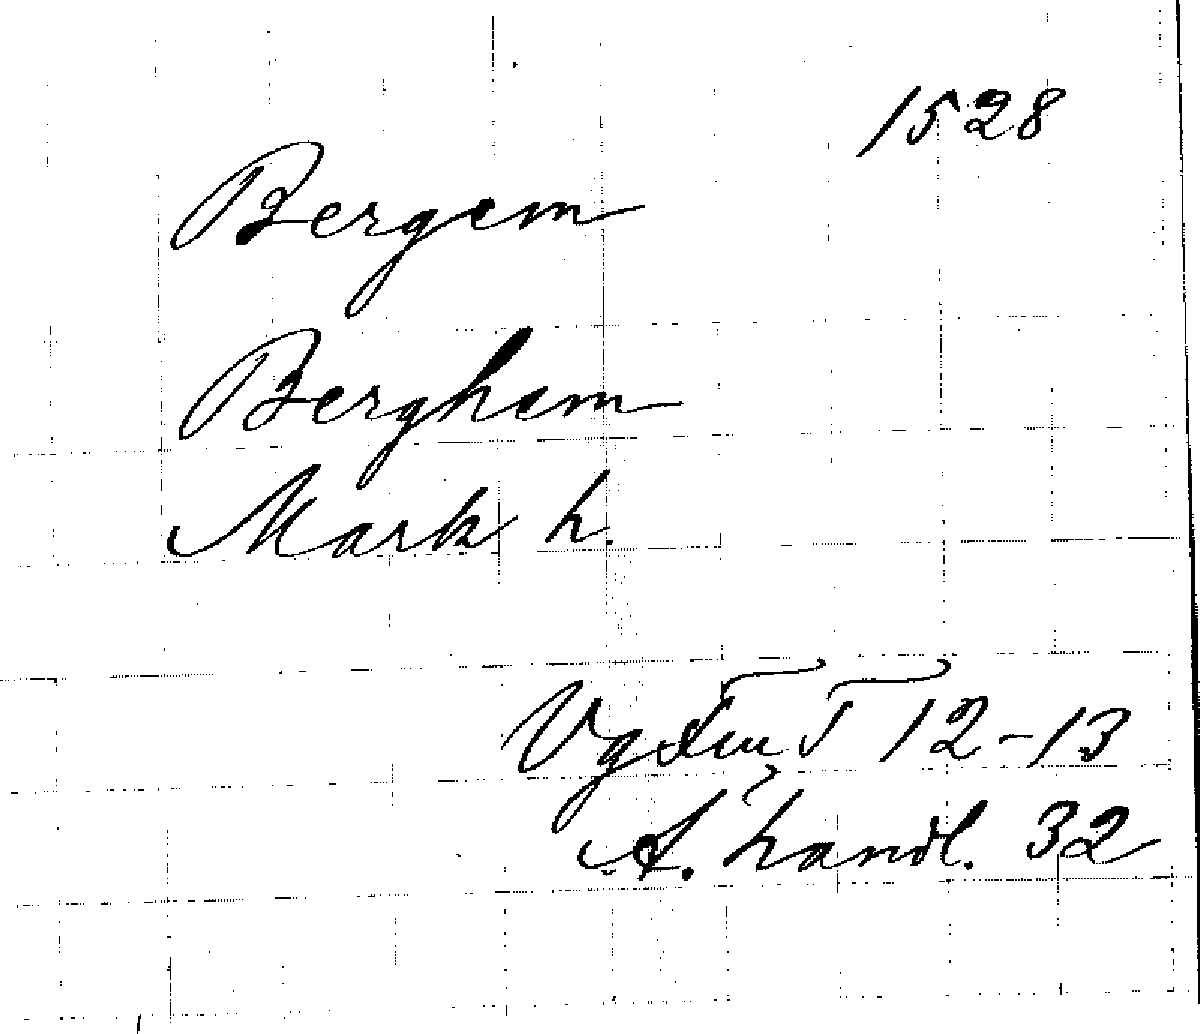 1528
Bergem
Berghem
Mark h.
Vg FmT 12-13
A. handl. 32